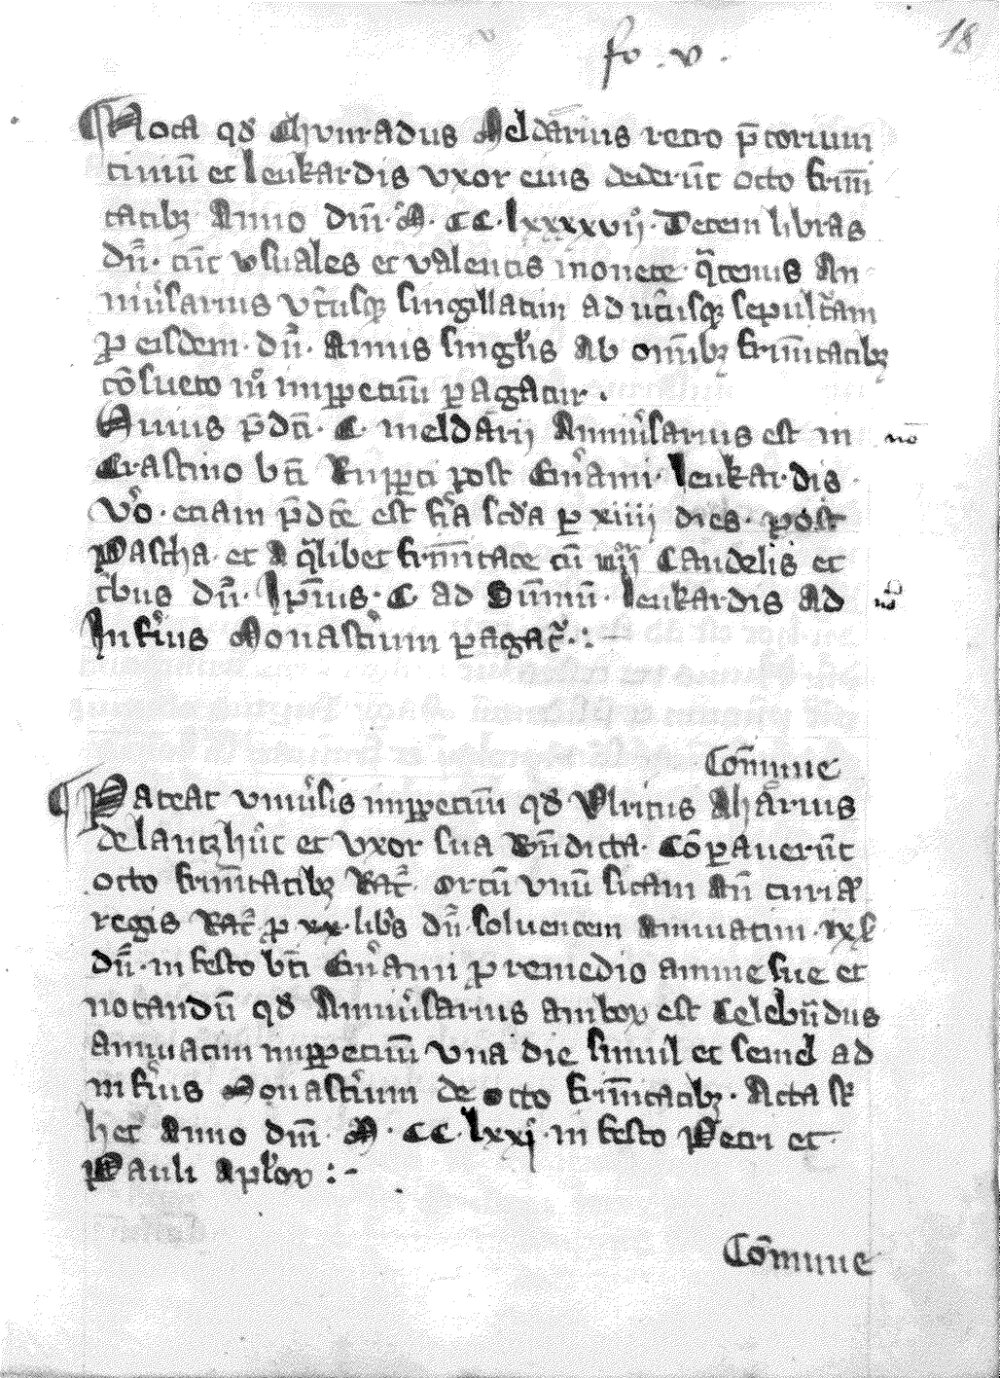 fo . v . 18
Nota qd Chunradus Meldarius retro ptorium
et leukardis uxor eius dederūt octo frnī
tatibꝫ Anno dnī M CC lxxxxvij Decem libras
dn̄ et valentis monete qtenus An
niusarius utusqꝫ singillatim ad utusqꝫ sepultam
p eisdem dn̄ Annis singlis ab omībꝫ frnītatibꝫ
cōsueto mō inppetuū pagatur .
Cuius pdcī C meldarij Anniusarius est in nō
Crastino btī Rupptī post Emami leukardis
vo etiam pdcē est fia scda p xiiij dies post
Pascha et a qlibet frnītate cū iiij Candelis et
tbus dn̄ Ipīus C ad Summū leukardis ad nō
Infius Monastium pagat . : -
Cōmune
Pateat uniusis inppetuū qd Ulricus Aharius
de lantzhut et uxor sua Bn̄dicta Cōpauerūt
octo frnītatibꝫ Rat ortū unū situm an̄ curiā
regis Rat p xx libis dn̄ soluentem annuatim lxx
dn̄ in festo btī Emami p remedio anime sue et
notandū qd Anniusarius amboꝝ est Celebn̄dus
annuatim inppetuū una die simul et semel ad
infius Monastium de octo frnītatibꝫ Acta st
hec Anno dnī M CC lxxi in festo Petri et
Pauli aploꝝ : -
Cōmune